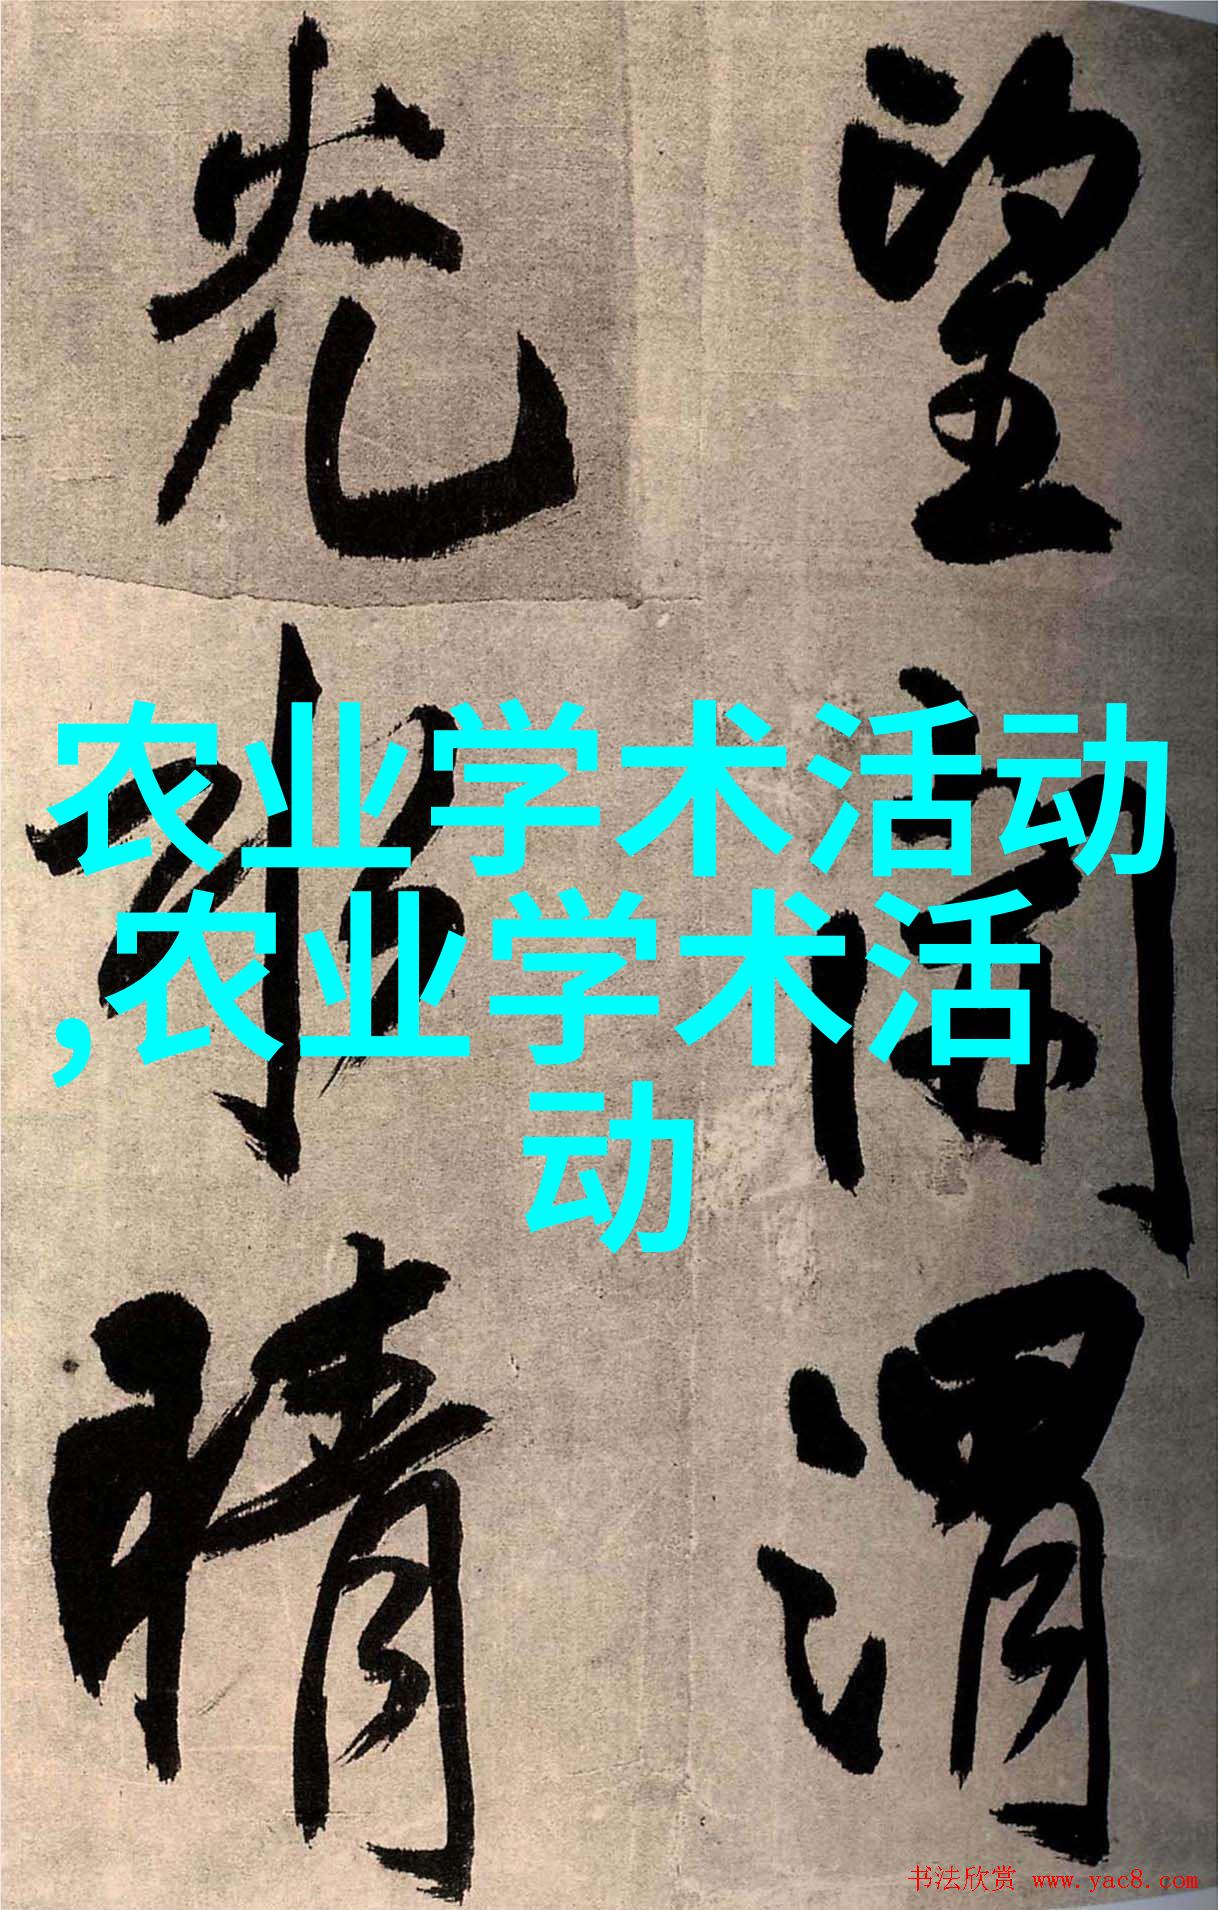 望 渭
光 晴
农业学术活动
,农业学术活
动
书法欣赏 www.yac8.com